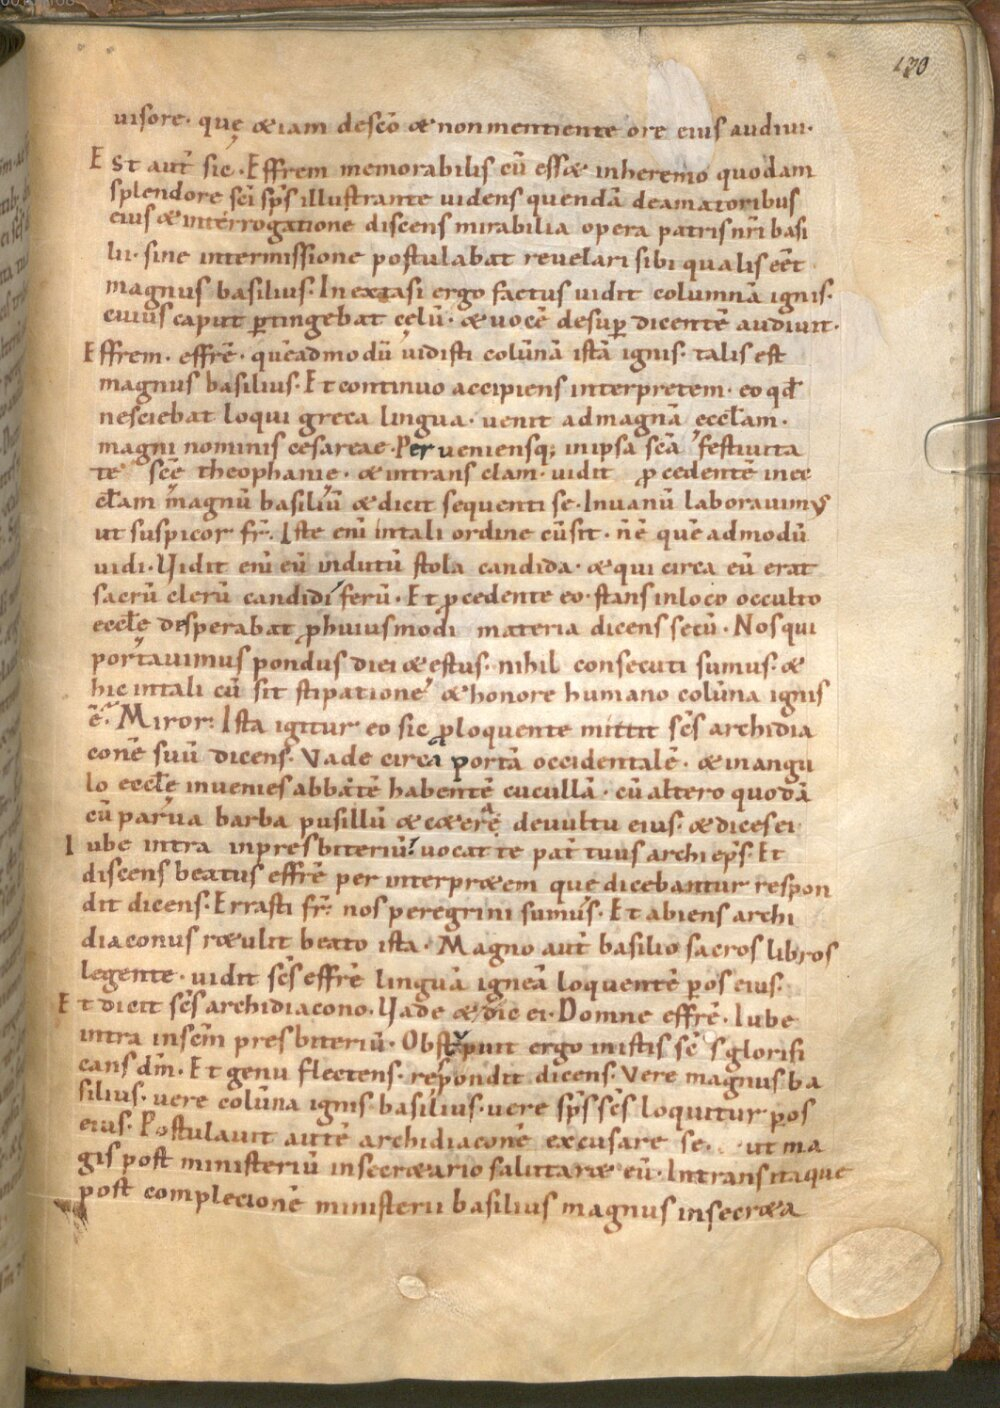 130
uisore· quę &iam descō & non mentiente ore eius audiui·
Est aut̄ sic· Effrem memorabilis cū ess& in heremo quodam
splendore sc̄i sp̄s illustrante uidens quendā de amatoribus
eius & interrogatione discens mirabilia opera patris nr̄i basi
lii· sine intermissione postulabat reuelari sibi qualis eēt
magnus basilius· In extasi ergo factus uidit columnā ignis·
cuius caput ꝑtingebat cęlū· & uocē desuꝑ dicentē audiuit·
Effrem· effrē· quēadmodū uidisti colūnā istā ignis· talis est
magnus basilius· Et continuo accipiens interpretem· eo qđ
nesciebat loqui greca lingua· uenit ad magnā eccl̄am·
magni nominis cesareae· Per ueniensq; in ipsa sc̄a festiuita
te sc̄ę theophanię· & intrans clam· uidit ꝓcedentē in ec
cl̄am magnū basiliū & dicit sequenti se· In uanū laborauimꝰ
ut suspicor fr̄· Iste eni in tali ordine cū sit· n̄ ē quē admodū
uidi· Uidit eni eū indutū stola candida· & qui circa eū erat
sacrū clerū candidi ferū· Et ꝓcedente eo· stans in loco occulto
eccl̄ę desperabat ꝓ huius modi materia dicens secū· Nos qui
portauimus pondus diei & estus· nihil consecuti sumus· &
hic in tali cū sit stipatione & honore humano colūna ignis
ē· Miror: Ista igitur eo sic ꝓloquente mittit sc̄s archidia
conē suū dicens· Vade circa portā occidentalē· & in angu
lo eccl̄ę inuenies abbatē habentē cucullā· cū altero quodā
cū parua barba pusillū & c&erę deuultu eius· & dices ei
Iube intra in presbiteriū· uocat te pat̄ tuus archi ep̄s· Et
discens beatus effrē per interpr&em que dicebantur respon
dit dicens· Errasti fr̄· nos peregrini sumus· Et abiens archi
diaconus r&ulit beato ista· Magno aut̄ basilio sacros libros
legente· uidit sc̄s effrē linguā igneā loquentē ꝑ os eius·
Et dicit sc̄s archidiacono· Uade & dic ei· Domne effrē· Iube
intra in sc̄m presbiteriū· Obstupuit ergo in istis sc̄s glorifi
cans dm̄· Et genu flectens· respondit dicens· Vere magnus ba
silius· uere colūna ignis basilius· uere sp̄s sc̄s loquitur ꝑ os
eius· Postulauit autē archidiaconē excusare se· ut ma
gis post ministeriū in secr&ario salutar& eū· Intrans itaque
post complecionē ministerii basilius magnus in secr&a